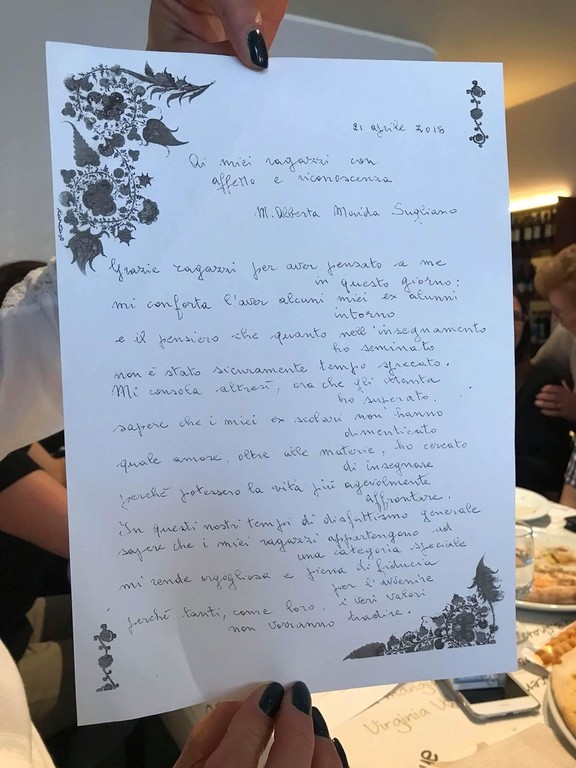 21 aprile 2018
Ai miei ragazzi con
affetto e riconoscenza
M. Alberta Movida Sugliano
Grazie ragazzi per aver pensato a me
in questo giorno:
mi conforta l'aver alcuni miei ex alunni
intorno
e il pensiero che quanto nell'insegnamento
ho seminato
non è stato sicuramente tempo sprecato.
Mi consola altresì, ora che gli ottanta
ho superato,
sapere che i miei ex scolari non hanno
dimenticato
quale amore, oltre alle materie, ho cercato
di insegnare
perché potessero la vita più agevolmente
affrontare.
In questi nostri tempi di disfattismo generale
sapere che i miei ragazzi appartengono ad
una categoria speciale
mi rende orgogliosa e piena di fiducia
per l'avvenire
perché tanti, come loro, i veri valori
non vorranno tradire.
Virginia